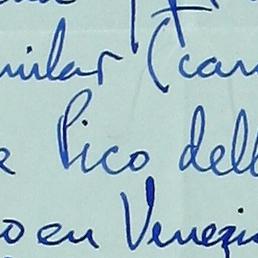 milar (can
Pico dell
o en Venezi